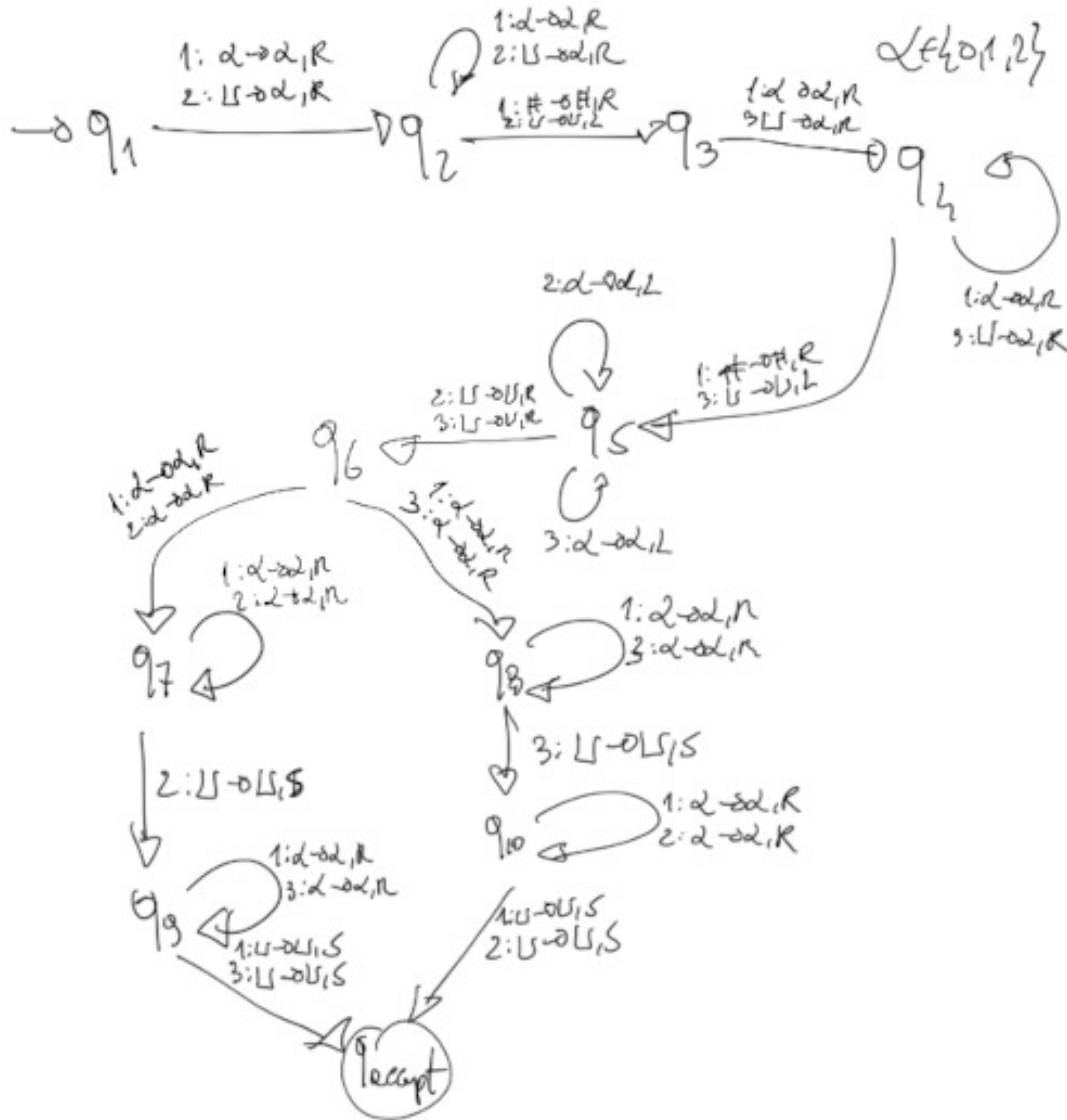 1: α→α,R
2: ⊔→α,R
1:α→α,R
2:⊔→α,R
α∈{0,1,2}
→ q1
1:#→#,R
2:⊔→⊔,L
q2
q3
1:α→α,R
3:⊔→α,R
q4
1:α→α,R
3:⊔→α,R
2:α→α,L
1:#→#,R
3:⊔→⊔,L
2:⊔→⊔,R
3:⊔→⊔,R
q5
q6
3:α→α,L
1:α→α,R
2:α→α,R
1:α→α,R
3:α→α,R
1:α→α,R
2:α→α,R
1:α→α,R
3:α→α,R
q7
q8
2:⊔→⊔,S
3:⊔→⊔,S
q10
1:α→α,R
2:α→α,R
1:α→α,R
3:α→α,R
q9
1:⊔→⊔,S
3:⊔→⊔,S
1:⊔→⊔,S
2:⊔→⊔,S
qaccept